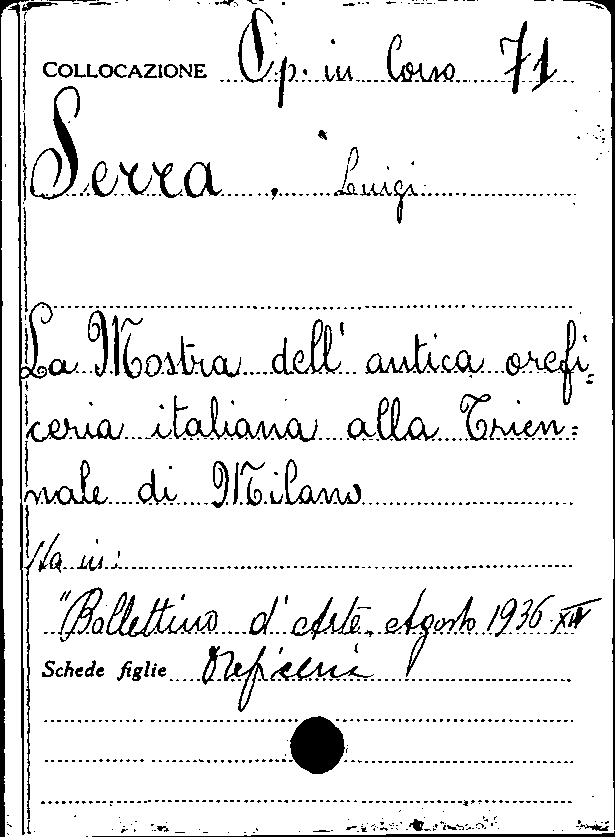 COLLOCAZIONE Op. in Corso 71
Serra, Luigi
La Mostra dell' antica orefi=
ceria italiana alla Trien=
nale di Milano
Sta in:
"Bollettino d'Arte, Agosto 1936-XIV
Schede figlie Oreficeria